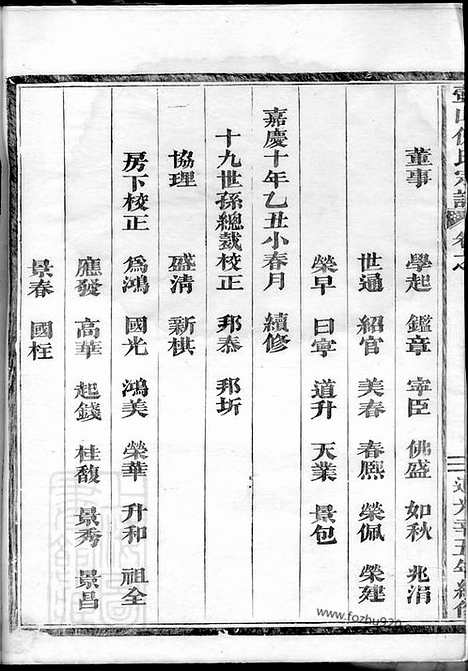 氏宗譜 卷之 道光 五年續修
董事 學起 鑑章 宰臣 佛盛 如秋 兆涓
世通 紹官 美春 春熈 榮佩 榮建
榮早 曰寧 道升 天業 景包
嘉慶十年乙丑小春月 續修
十九世孫總裁校正 邦泰 邦圻
協理 盛清 新棋
房下校正 為鴻 國光 鴻美 榮華 升和 祖全
應發 高華 起錢 桂馥 景秀 景昌
景春 國枉
www.fozhu920.com